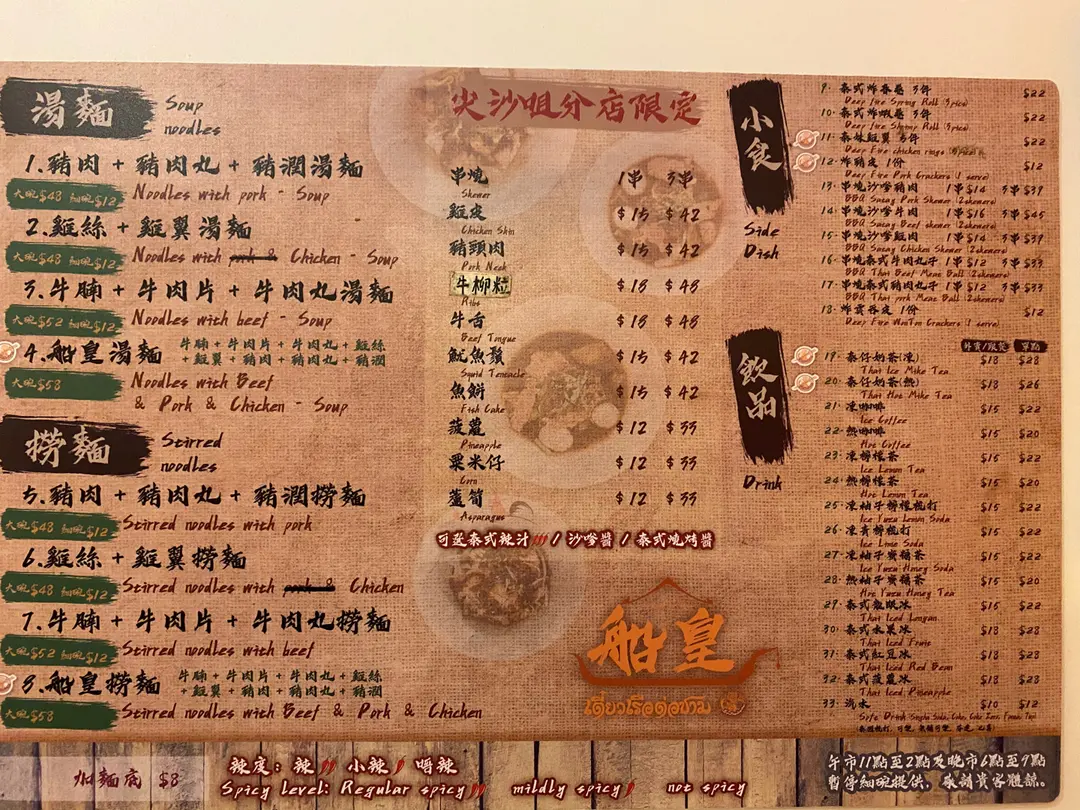 湯麵
Soup
noodles
1.豬肉 + 豬肉丸 + 豬潤湯麵
大碗$48 細碗$12
Noodles with pork - Soup
2.雞絲 + 雞翼湯麵
大碗$48 細碗$12
Noodles with pork & Chicken - Soup
3.牛腩 + 牛肉片 + 牛肉丸湯麵
大碗$52 細碗$12
Noodles with beef - Soup
4.船皇湯麵
牛腩 + 牛肉片 + 牛肉丸 + 雞絲
+ 雞翼 + 豬肉 + 豬肉丸 + 豬潤
大碗$58
Noodles with Beef
& Pork & Chicken - Soup
撈麵
Stirred
noodles
5.豬肉 + 豬肉丸 + 豬潤撈麵
大碗$48 細碗$12
Stirred noodles with pork
6.雞絲 + 雞翼撈麵
大碗$48 細碗$12
Stirred noodles with pork & Chicken
7.牛腩 + 牛肉片 + 牛肉丸撈麵
大碗$52 細碗$12
Stirred noodles with beef
8.船皇撈麵
牛腩 + 牛肉片 + 牛肉丸 + 雞絲
+ 雞翼 + 豬肉 + 豬肉丸 + 豬潤
大碗$58
Stirred noodles with Beef & Pork & Chicken
尖沙咀分店限定
串燒 1串 3串
Skewer
雞皮 $15 $42
Chicken Skin
豬頸肉 $15 $42
Pork Neck
牛柳粒 $18 $48
Ribs
牛舌 $18 $48
Beef Tongue
魷魚鬚 $15 $42
Squid Tentacle
魚餅 $15 $42
Fish Cake
菠蘿 $12 $33
Pineapple
粟米仔 $12 $33
Corn
蘆筍 $12 $33
Asparagus
可選泰式辣汁 / 沙嗲醬 / 泰式燒烤醬
船皇
小食
Side
Dish
9. 泰式炸春卷 3件 $22
Deep Fire Spring Roll (3pics)
10. 泰式炸蝦卷 3件 $22
Deep Fire Shrimp Roll (3pics)
11. 泰妹雞翼 3件 $22
Deep Fire chicken rings
12. 炸豬皮 1份 $12
Deep Fire Pork Crackers (1 serve)
13. 串燒沙嗲豬肉 1串$14 3串$39
BBQ Satay Pork Skewer (2skewers)
14. 串燒沙嗲牛肉 1串$16 3串$45
BBQ Satay Beef Skewer (2skewers)
15. 串燒沙嗲雞肉 1串$14 3串$39
BBQ Satay Chicken Skewer (2skewers)
16. 串燒泰式牛肉丸子 1串$12 3串$33
BBQ Thai Beef Meat Ball (2skewers)
17. 串燒泰式豬肉丸子 1串$12 3串$33
BBQ Thai pork Meat Ball (2skewers)
18. 炸雲吞皮 1份 $12
Deep Fire WonTon Crackers (1 serve)
飲品
Drink
外賣/跟餐 單點
19. 泰仔奶茶(凍) $18 $28
Thai Ice Milk Tea
20. 泰仔奶茶(熱) $18 $26
Thai Hot Milk Tea
21. 凍咖啡 $15 $22
Ice Coffee
22. 熱咖啡 $15 $20
Hot Coffee
23. 凍檸檬茶 $15 $22
Ice Lemon Tea
24. 熱檸檬茶 $15 $20
Hot Lemon Tea
25. 凍柚子檸檬梳打 $15 $22
Ice Yuzu Lemon Soda
26. 凍青檸梳打 $15 $22
Ice Lime Soda
27. 凍柚子蜜糖茶 $15 $22
Ice Yuzu Honey Soda
28. 熱柚子蜜糖茶 $15 $20
Hot Yuzu Honey Tea
29. 泰式龍眼冰 $15 $22
Thai Iced Longan
30. 泰式水果冰 $18 $28
Thai Iced Fruits
31. 泰式紅豆冰 $18 $28
Thai Iced Red Bean
32. 泰式菠蘿冰 $18 $28
Thai Iced Pineapple
33. 汽水 $10 $12
加麵底 $8
辣度：辣 小辣 唔辣
Spicy Level: Regular spicy mildly spicy not spicy
午市11點至2點及晚市6點至9點
暫停細碗提供，敬請貴客體諒。